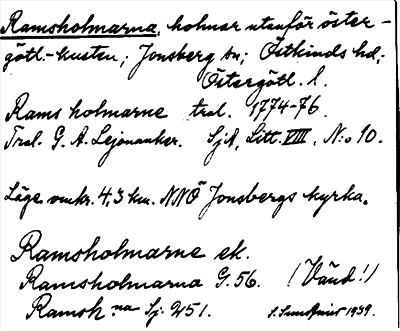 Ramsholmarna, holmar utanför öster-
götl.-kusten; Jonsberg sn; Östkinds hd;
Östergötl. l.
Rams holmarne trol. 1774-76.
Trol. G. A. Lejonanker. SjA, Litt. VIII, N:o 10.
Läge omkr. 4,3 km. NNÖ Jonsbergs kyrka.
Ramsholmarne ek.
Ramsholmarna G. 56. (Vänd!)
Ramsh na Sj. 251. 1939.